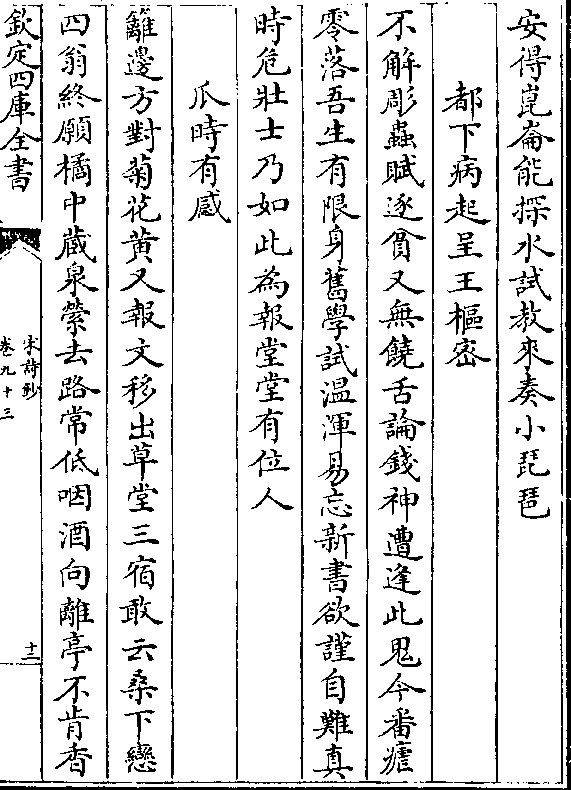 安得崑崙能探水試教來奏小琵琶
都下病起呈王樞密
不解彫蟲賦逐貧又無饒舌論錢神遭逢此鬼今番瘧
零落吾生有限身舊學試温渾易忘新書欲謹自難真
時危壯士乃如此為報堂堂有位人
瓜時有感
籬邊方對菊花黄又報文移出草堂三宿敢云桑下戀
四翁終願橘中藏泉縈去路常低咽酒向離亭不肯香
欽定四庫全書
宋詩鈔
卷九十三
十二